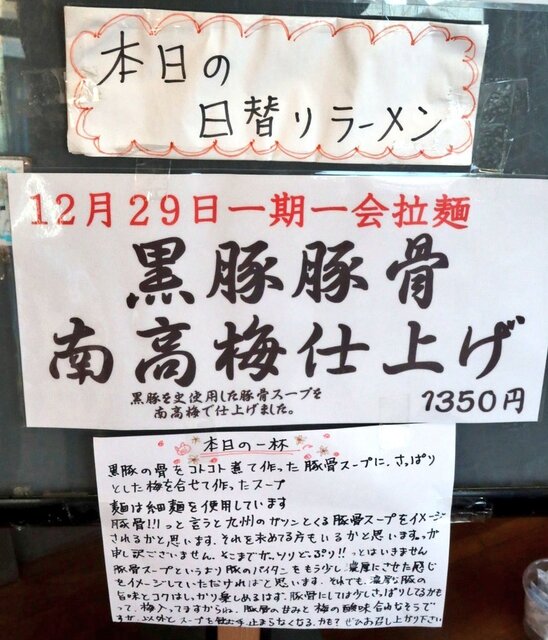 本日の
日替りラーメン
12月29日一期一会拉麺
黒豚豚骨
南高梅仕上げ
黒豚を史使用した豚骨スープを
南高梅で仕上げました。
1350円
本日の一杯
黒豚の骨をコトコト煮て作った豚骨スープに、さっぱり
とした梅を合せて作ったスープ
麺は細麺を使用しています
豚骨!!!っと言うと九州のガツンとくる豚骨スープをイメージ
されるかと思います。それを求める方もいるかと思います。が
申し訳ございません。そこまでがっツリどっぷり!!っとはいきません
豚骨スープというより豚のパイタンをもう少し濃厚にさせた感じ
をイメージしていただければと思います。それでも、濃厚な豚の
旨味とコクはしっかり楽しめるはず。豚骨にしては少しさっぱりしてるかも
って、梅入ってますからね、豚骨の甘みと梅の酸味合わなそうで
すが以外とスープを飲む手止まらなくなる、かも?ぜひお召し上がり下さい